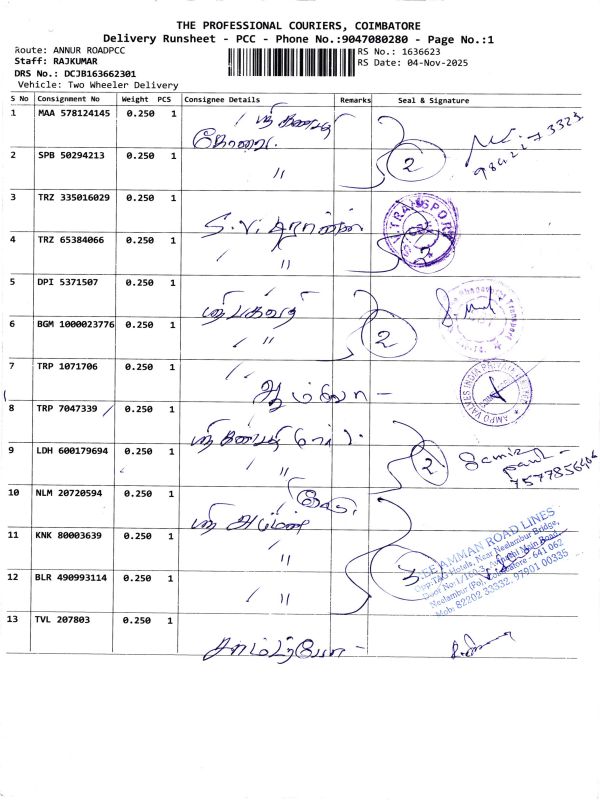 THE PROFESSIONAL COURIERS, COIMBATORE
Delivery Runsheet - PCC - Phone No.:9047080280 - Page No.:1
Route: ANNUR ROADPCC
Staff: RAJKUMAR
DRS No.: DCJB163662301
Vehicle: Two Wheeler Delivery
RS No.: 1636623
RS Date: 04-Nov-2025
S No Consignment No Weight PCS Consignee Details Remarks Seal & Signature
1 MAA 578124145 0.250 1
கோவை.
2 SPB 50294213 0.250 1 "
2
3 TRZ 335016029 0.250 1
S.V.
4 TRZ 65384066 0.250 1 "
TRANSPORT
5 DPI 5371507 0.250 1
6 BGM 1000023776 0.250 1 "
2
7 TRP 1071706 0.250 1
AMPO VALVES INDIA PRIVATE LIMITED
8 TRP 7047339 0.250 1
9 LDH 600179694 0.250 1 "
2
7577856406
10 NLM 20720594 0.250 1
ஸ்ரீ அம்மன்
11 KNK 80003639 0.250 1 "
3
12 BLR 490993114 0.250 1 "
SREE AMMAN ROAD LINES
Opp:TAG Hotels, Near Neelambur Bridge,
Avinashi Main Road,
Neelambur (Po), Coimbatore - 641 062
Mob: 82202 33532, 97901 00335
13 TVL 207803 0.250 1